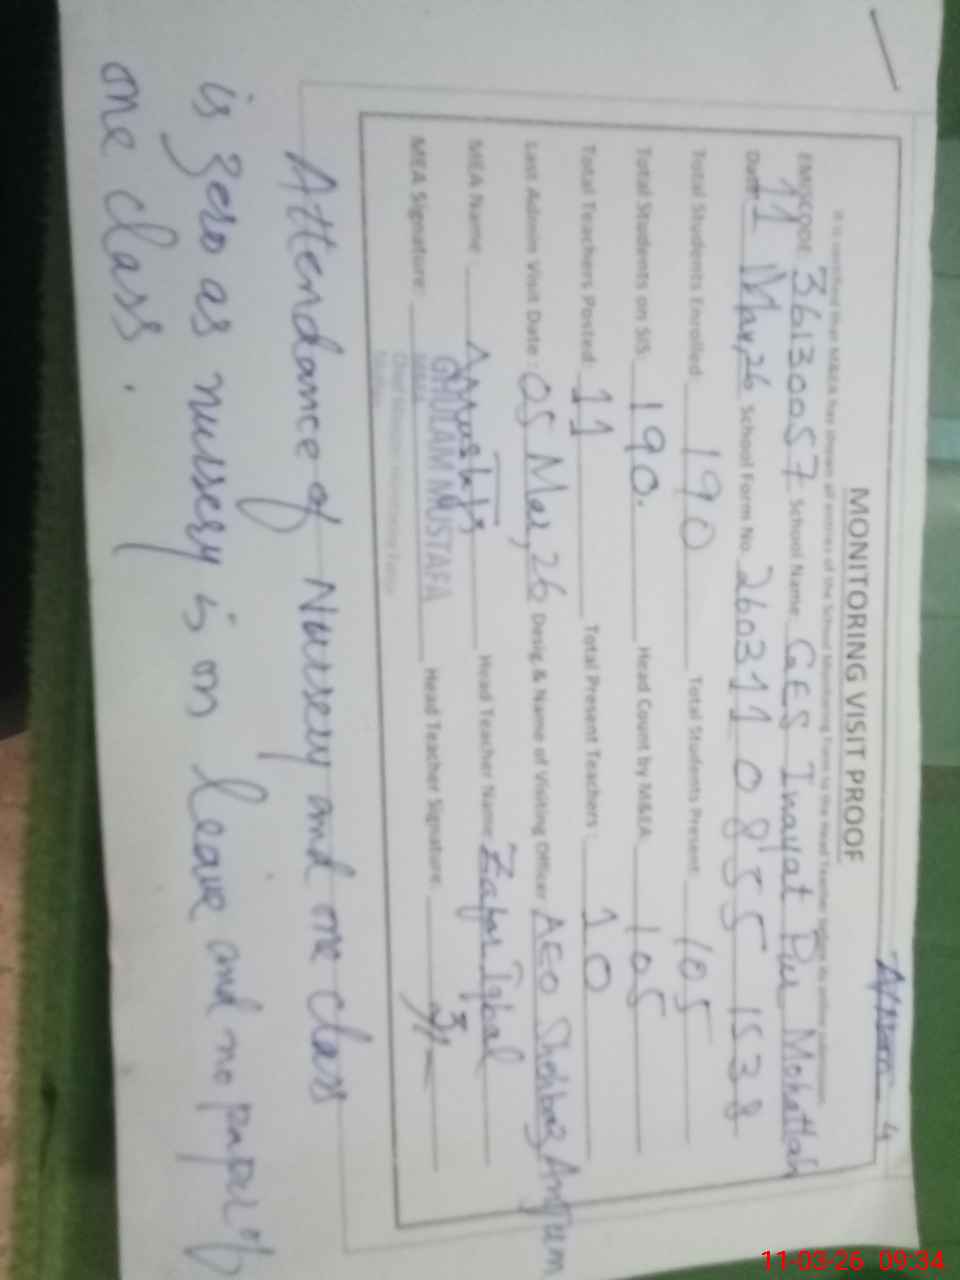 4
MONITORING VISIT PROOF
It is certified that M&EA has shown all entries of the School Monitoring Form to the Head Teacher before its online submission
EMIS Code: 36130057 School Name GES Inayat Pur Mohattlah
Date 11 Mar,26 School Form No. 26031108551538
Total Students Enrolled: 190 Total Students Present: 105
Total Students on SIS: 190. Head Count by M&EA: 105
Total Teachers Posted: 11 Total Present Teachers: 10
Last Admin Visit Date: 05 Mar,26 Desig & Name of Visiting Officer AEO Shehbaz Anjum
MEA Name: Head Teacher Name Zafar Iqbal
MEA Signature: GHULAM MUSTAFA Head Teacher Signature:
Attendance of Nursery and one class
is zero as nursery is on leave and no paper of
one class.
11-03-26 09:34